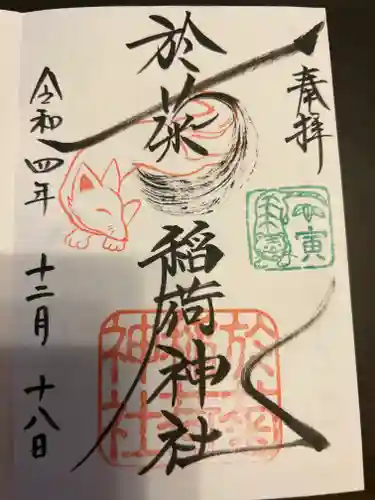 奉拝
於菊稲荷神社
令和四年 十二月 十八日
壬寅
於菊稲荷神社